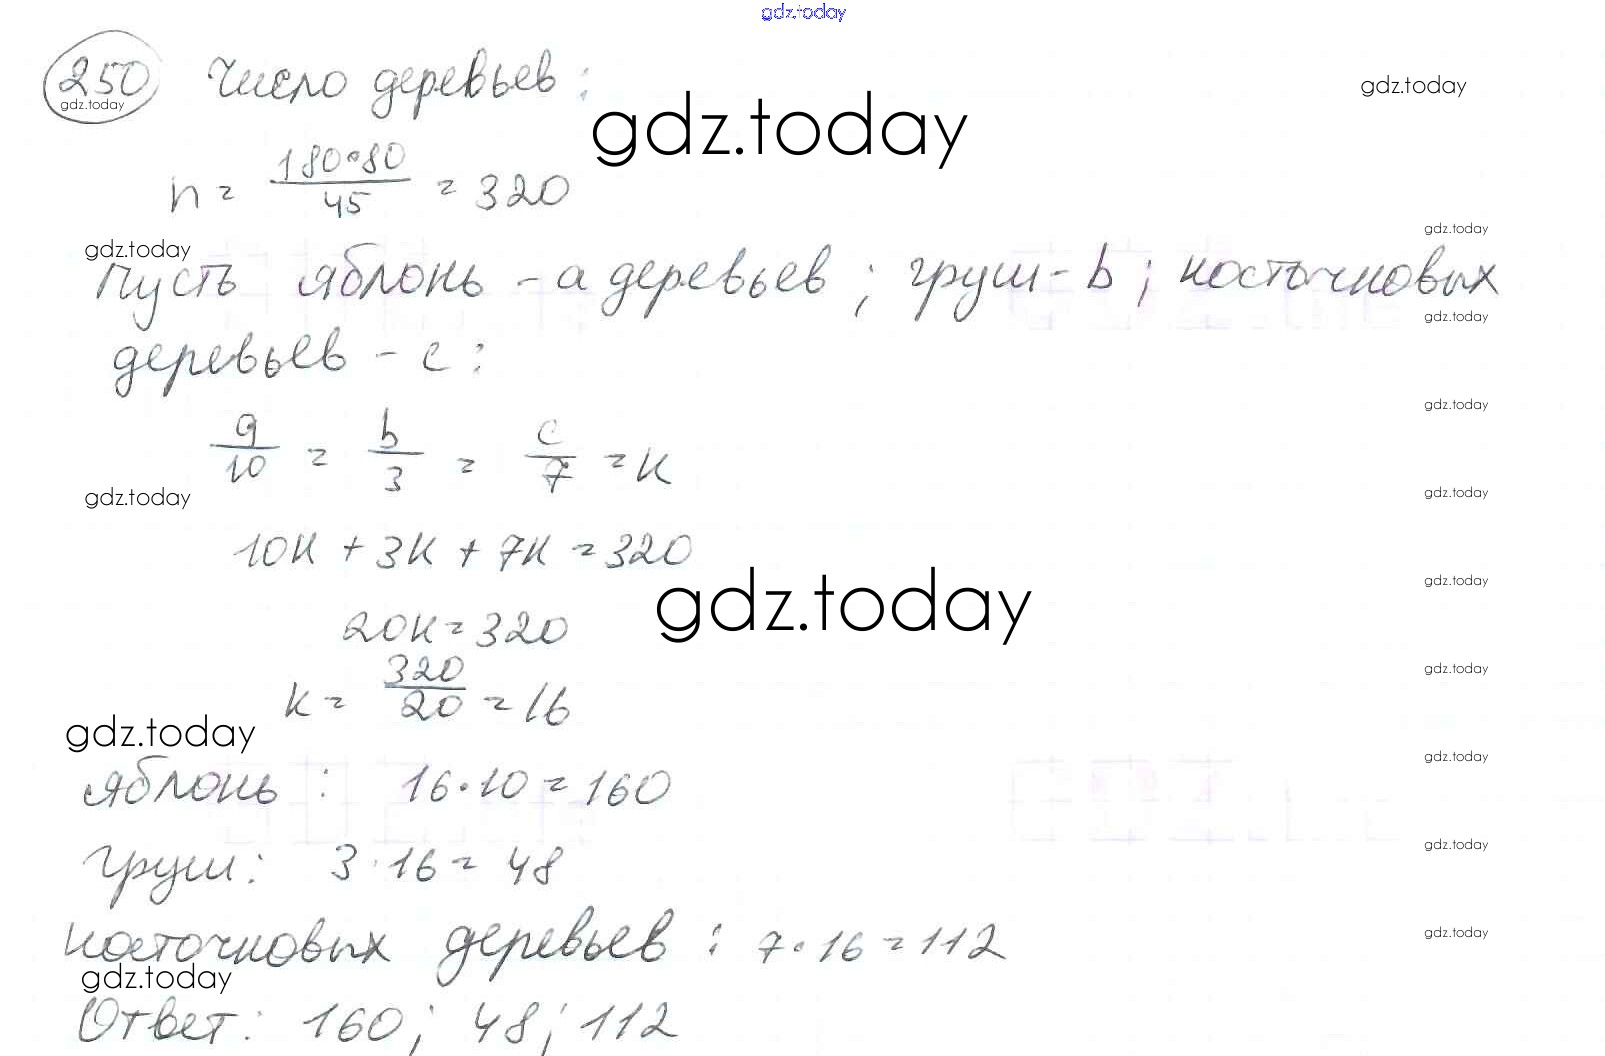 gdz.today
250 Число деревьев:
gdz.today
gdz.today
gdz.today
n = 180·80/45 = 320
gdz.today
gdz.today
Пусть яблонь - а деревьев; груш - b; косточковых
gdz.today
деревьев - с:
gdz.today
a/10 = b/3 = c/7 = к
gdz.today
gdz.today
10к + 3к + 7к = 320
gdz.today
gdz.today
20к = 320
gdz.today
к = 320/20 = 16
gdz.today
gdz.today
яблонь: 16·10 = 160
gdz.today
груш: 3·16 = 48
gdz.today
косточковых деревьев: 7·16 = 112
gdz.today
Ответ: 160; 48; 112